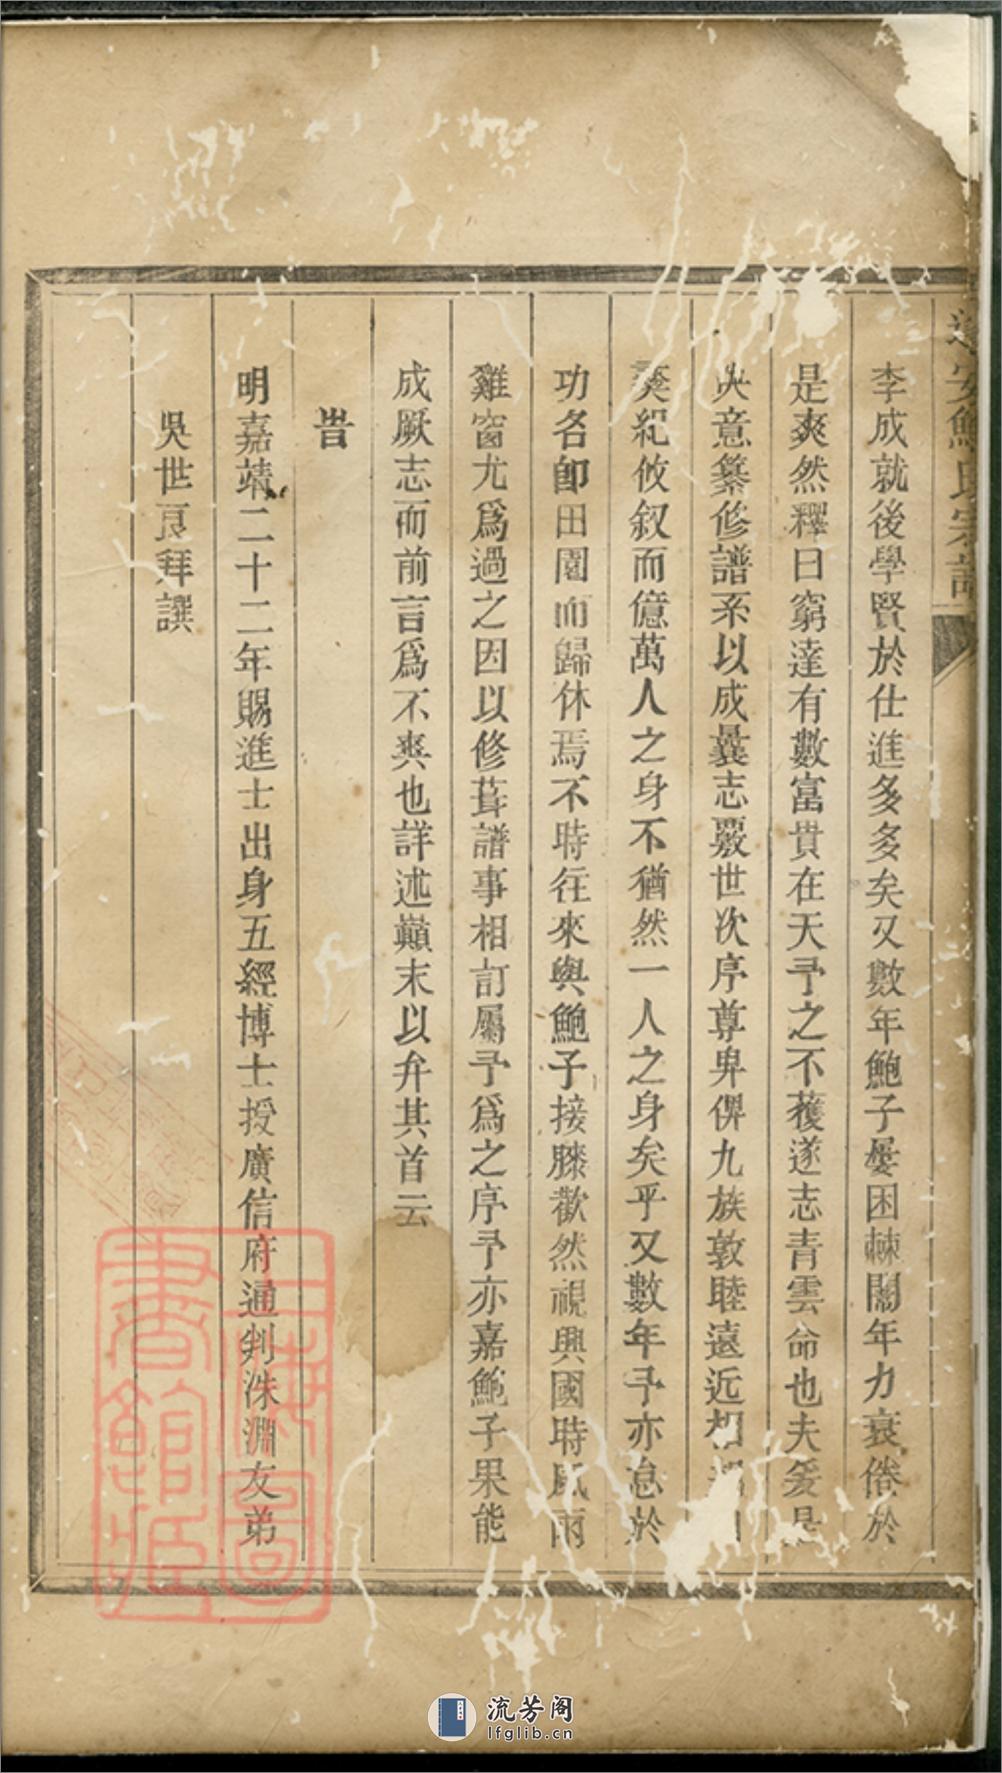 遂安鮑氏宗譜
李成就後學賢於仕進多多矣又數年鮑子屢困棘闈年力衰倦於
是爽然釋曰窮達有數富貴在天予之不獲遂志青雲命也夫爰是
決意纂修譜系以成曩志覈世次序尊卑俾九族敦睦遠近相
彝紀攸叙而億萬人之身不猶然一人之身矣乎又數年予亦怠於
功名卽田園而歸休焉不時往來與鮑子接膝歡然視興國時風雨
雞窗尤爲過之因以修葺譜事相訂屬予爲之序予亦嘉鮑子果能
成厥志而前言爲不爽也詳述巔末以弁其首云
旹
明嘉靖二十二年賜進士出身五經博士授廣信府通判洙淵友弟
吳世良拜譔
上海圖書館藏
流芳阁
lfglib.cn